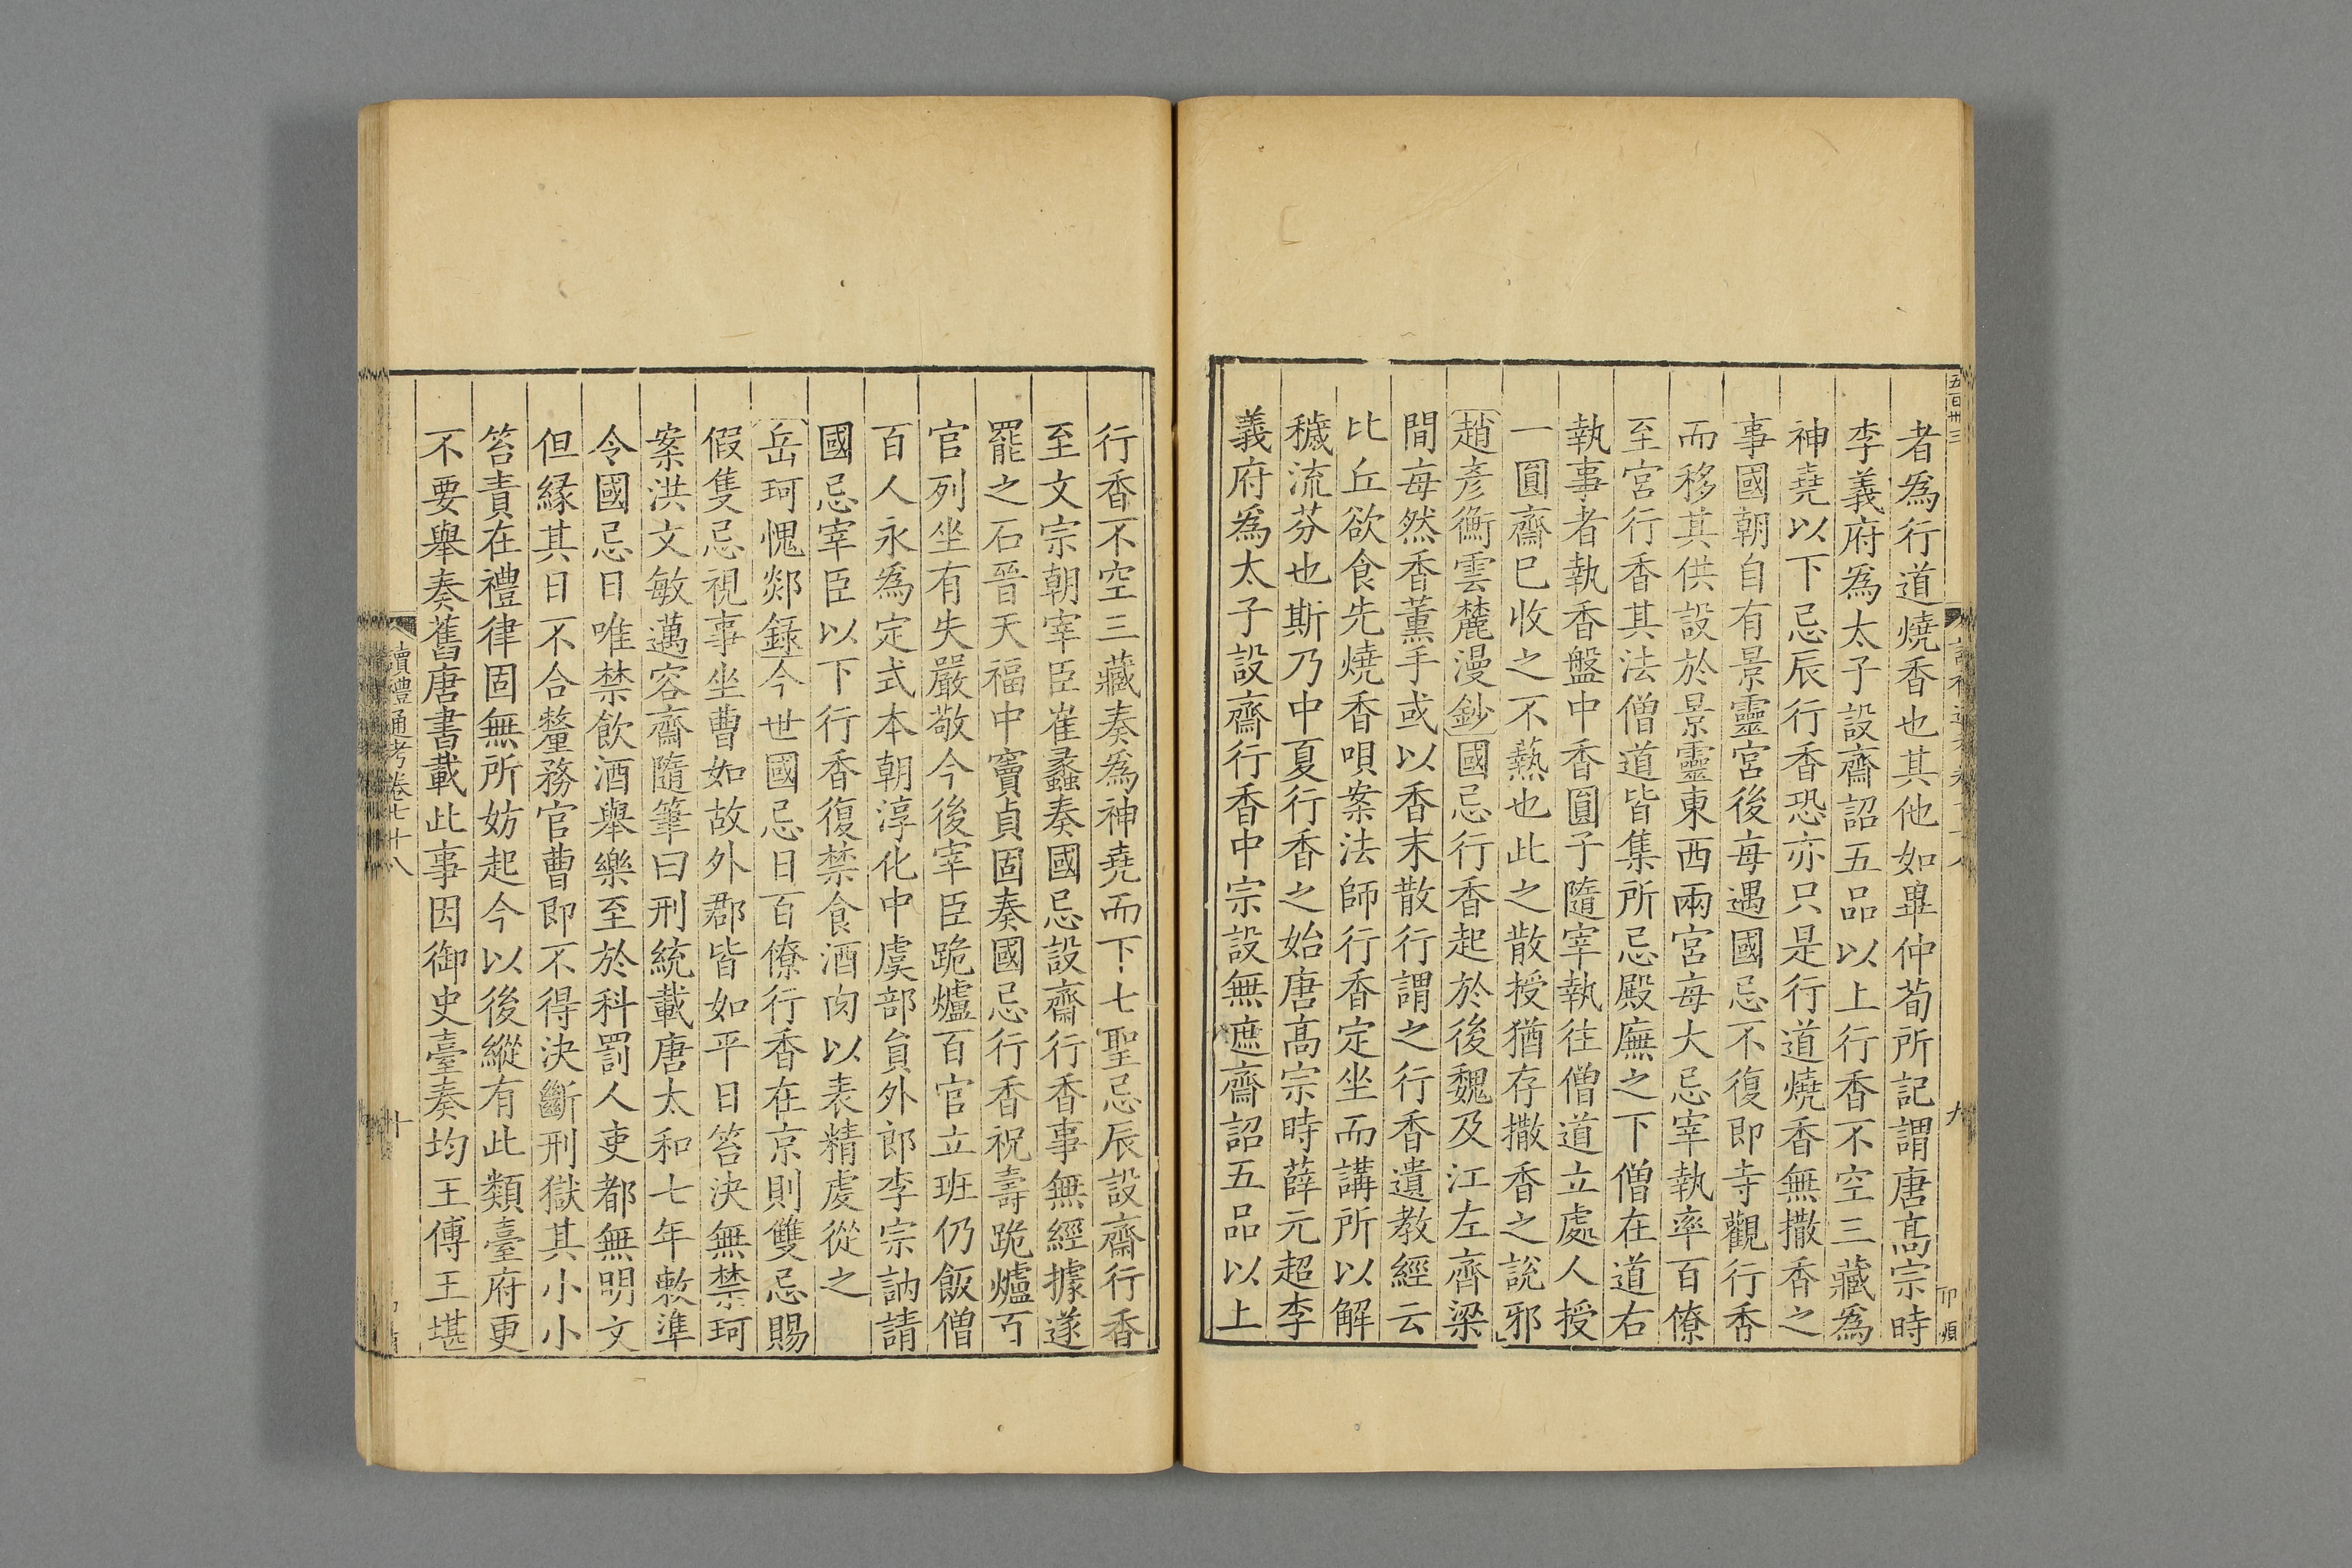 五百卅三
者爲行道燒香也其他如畢仲荀所記謂唐髙宗時
李義府爲太子設齋詔五品以上行香不空三藏爲
神堯以下忌辰行香恐亦只是行道燒香無撒香之
事國朝自有景靈宮後每遇國忌不復即寺觀行香
而移其供設於景靈東西兩宮每大忌宰執率百僚
至宮行香其法僧道皆集所忌殿廡之下僧在道右
執事者執香盤中香圓子隨宰執往僧道立處人授
一圓齋已收之不爇也此之散授猶存撒香之說邪
趙彦衞雲麓漫鈔國忌行香起於後魏及江左齊梁
間每然香薰手或以香末散行謂之行香遺教經云
比丘欲食先燒香唄案法師行香定坐而講所以解
穢流芬也斯乃中夏行香之始唐髙宗時薛元超李
義府爲太子設齋行香中宗設無遮齋詔五品以上
行香不空三藏奏爲神堯而下七聖忌辰設齋行香
至文宗朝宰臣崔蠡奏國忌設齋行香事無經據遂
罷之石晉天福中竇貞固奏國忌行香祝壽跪爐百
官列坐有失嚴敬今後宰臣跪爐百官立班仍飯僧
百人永爲定式本朝淳化中虞部員外郎李宗訥請
國忌宰臣以下行香復禁食酒肉以表精虔從之
岳珂愧郯錄今世國忌日百僚行香在京則雙忌賜
假隻忌視事坐曹如故外郡皆如平日笞決無禁珂
案洪文敏邁容齋隨筆曰刑統載唐太和七年敕準
令國忌日唯禁飲酒舉樂至於科罰人吏都無明文
但緣其日不合釐務官曹即不得決斷刑獄其小小
笞責在禮律固無所妨起今以後縱有此類臺府更
不要舉奏舊唐書載此事因御史臺奏均王傅王堪
讀禮通考卷七十八
十